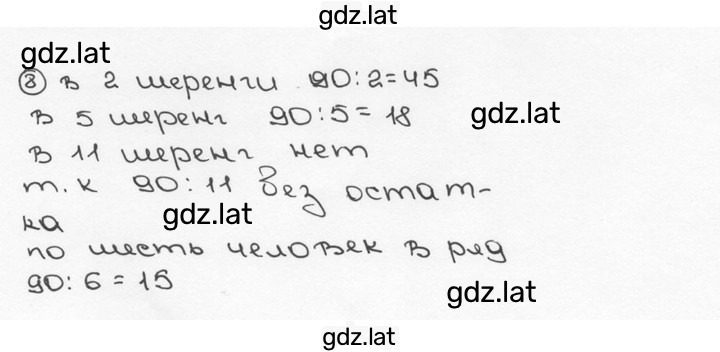 gdz.lat
gdz.lat
⑧ в 2 шеренги 90:2=45
в 5 шеренг 90:5=18
gdz.lat
в 11 шеренг нет
т.к 90:11 без остат-
gdz.lat
ка
по шесть человек в ряд
90:6=15
gdz.lat
gdz.lat